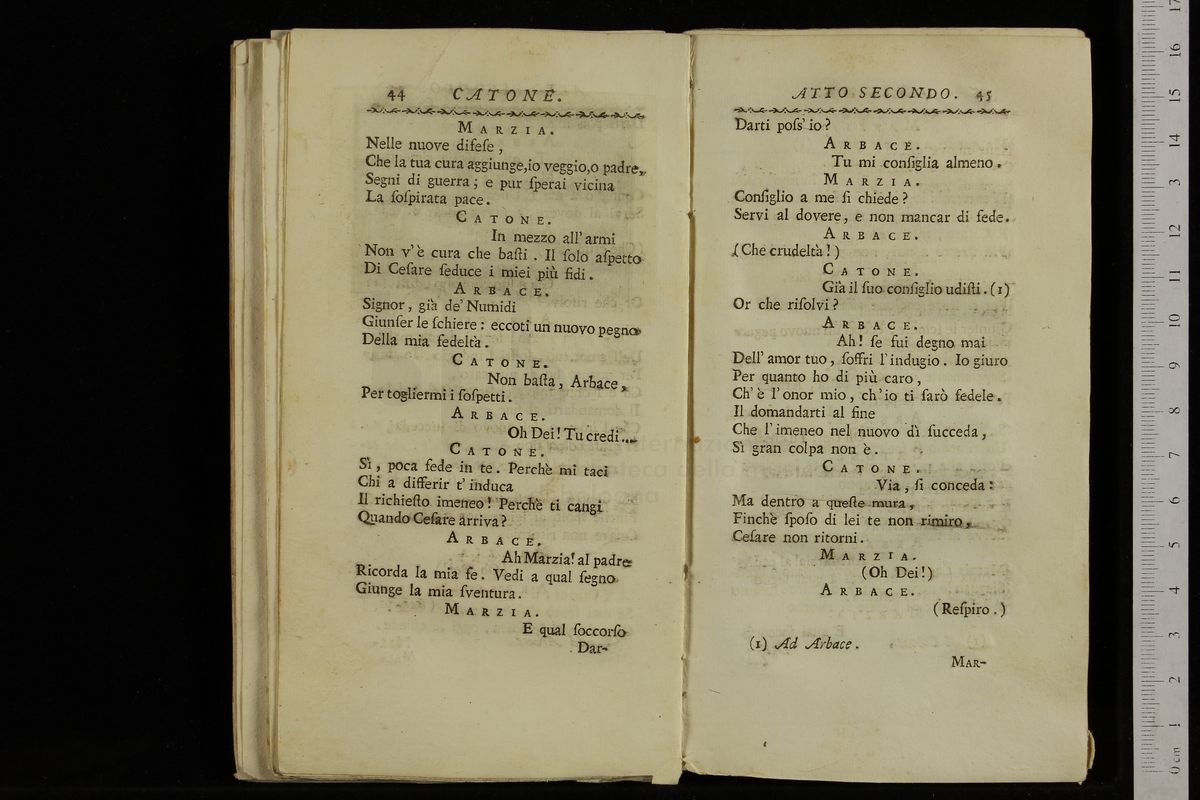 44 CATONE.
MARZIA.
Nelle nuove difeſe ,
Che la tua cura aggiunge,io veggio,o padre,
Segni di guerra ; e pur ſperai vicina
La ſoſpirata pace .
CATONE.
In mezzo all' armi
Non v' è cura che baſti . Il ſolo aſpetto
Di Ceſare ſeduce i miei più fidi .
ARBACE.
Signor , già de' Numidi
Giunſer le ſchiere : eccoti un nuovo pegno
Della mia fedeltà .
CATONE.
Non baſta , Arbace ,
Per togliermi i ſoſpetti .
ARBACE.
Oh Dei ! Tu credi ...
CATONE.
Sì , poca fede in te . Perchè mi taci
Chi a differir t' induca
Il richieſto imeneo ! Perchè ti cangi
Quando Ceſare arriva ?
ARBACE.
Ah Marzia! al padre
Ricorda la mia fe . Vedi a qual ſegno
Giunge la mia ſventura .
MARZIA.
E qual ſoccorſo
Dar-
ATTO SECONDO. 45
Darti poſs' io ?
ARBACE.
Tu mi conſiglia almeno .
MARZIA.
Conſiglio a me ſi chiede ?
Servi al dovere , e non mancar di fede .
ARBACE.
( Che crudeltà ! )
CATONE.
Già il ſuo conſiglio udiſti . (1)
Or che riſolvi ?
ARBACE.
Ah ! ſe fui degno mai
Dell' amor tuo , ſoffri l' indugio . Io giuro
Per quanto ho di più caro ,
Ch' è l' onor mio , ch' io ti ſarò fedele .
Il domandarti al fine
Che l' imeneo nel nuovo dì ſucceda ,
Sì gran colpa non è .
CATONE.
Via , ſi conceda :
Ma dentro a queſte mura ,
Finchè ſpoſo di lei te non rimiro ,
Ceſare non ritorni .
MARZIA.
( Oh Dei ! )
ARBACE.
( Reſpiro . )
(1) Ad Arbace .
MAR-
0 cm 1 2 3 4 5 6 7 8 9 10 11 12 13 14 15 16 17